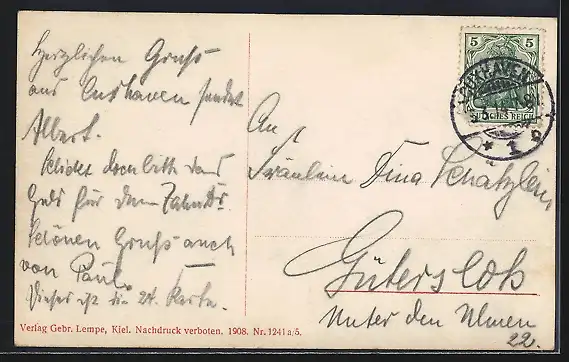 Herzlichen Gruß
aus Cuxhaven sendet
Albert.
Schicket doch bitte das
Geld für den Zahn Dr.
Schönen Gruß auch
von Paul.
Dieses ist die 24. Karte.
Verlag Gebr. Lempe, Kiel. Nachdruck verboten. 1908. Nr. 1241 a/5.
5 5
DEUTSCHES REICH
CUXHAVEN
* 1 b
An
Fräulein Dina Schatzlein
Gütersloh
Unter den Ulmen
22.